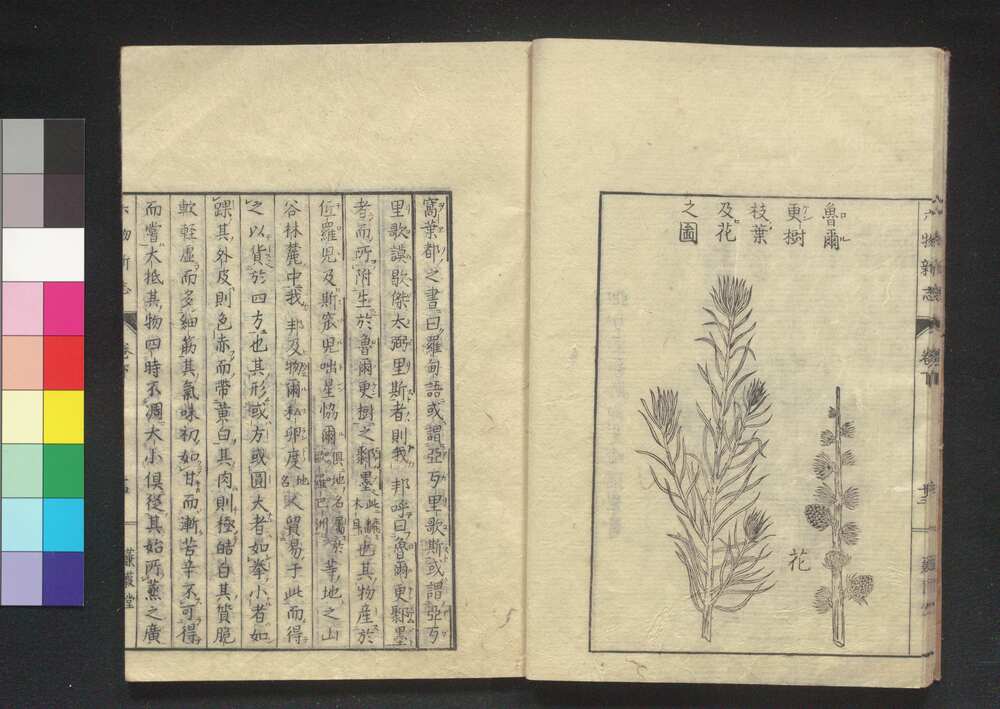 魯爾
更樹
枝葉
及花
之圖
花
六物新志
窩葉都之書曰羅甸語或謂亞万里歌斯或謂亞万
里歌謨歇傑太弼里斯者則我邦呼曰魯爾更鄹墨
者而所附生於魯爾更樹之鄹墨也其物産於
谷林麓中我邦及物爾私卵度地名人貿易于此而得
之以貨於四方也其形或方或圓大者如拳小者如
踝其外皮則色赤而帶黄白其肉則極皓白其質脆
軟輕虛而多細筋其氣味初如甘而漸苦辛不可得
而嘗大抵其物四時不凋大小俱從其始所蒸之廣